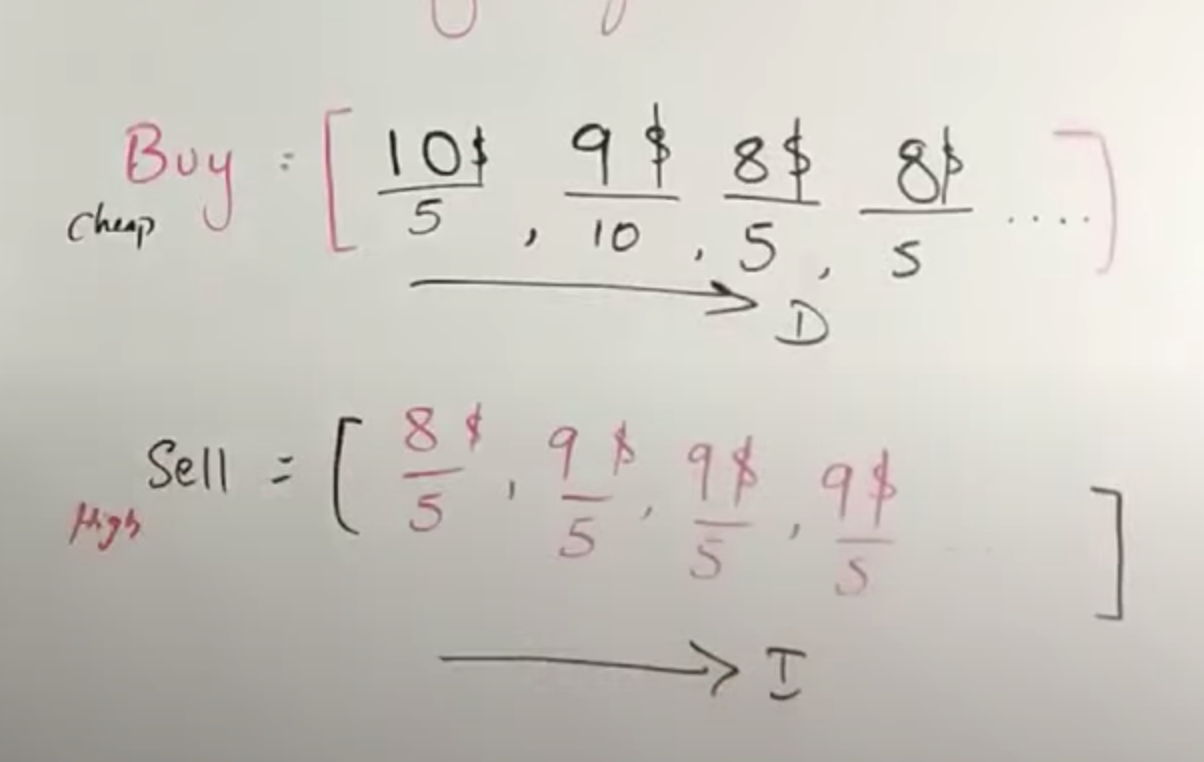 Buy = [ 10$/5 , 9$/10 , 8$/5 , 8$/5 .... ]
Cheap
D
Sell = [ 8$/5 , 9$/5 , 9$/5 , 9$/5 .... ]
High
I